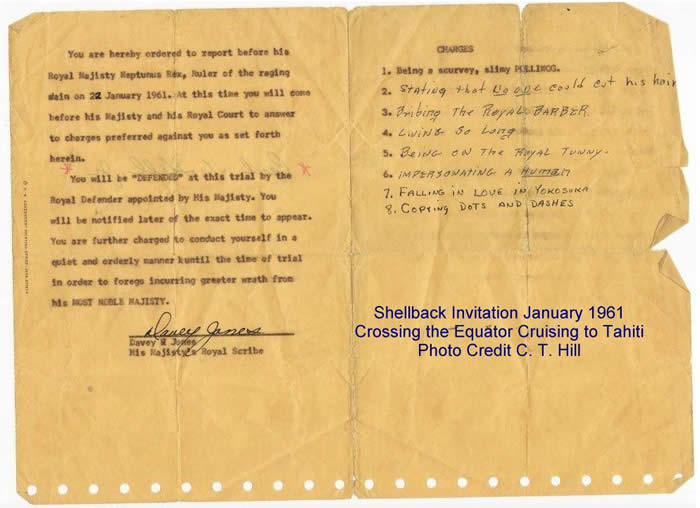 You are hereby ordered to report before his
Royal Majisty Neptunus Rex, Ruler of the raging
main on 22 January 1961. At this time you will come
before his Majisty and his Royal Court to answer
to charges preferred against you as set forth
herein.
You will be "DEFENDED" at this trial by the
Royal Defender appointed by His Majisty. You
will be notified later of the exact time to appear.
You are further charged to conduct yourself in a
quiet and orderly manner kuntil the time of trial
in order to forego incurring greeter wrath from
his MOST NOBLE MAJISTY.
Davey Jones
Davey H Jones
His Majisty's Royal Scribe
CHARGES
1. Being a scurvey, slimy POLLIWOG.
2. Stating that No one could cut his hair
3. Bribing The ROYAL BARBER.
4. Living So Long
5. BEING ON THE ROYAL TUNNY.
6. IMPERSONATING A HUMAN
7. FALLING IN LOVE IN YOKOSUKA
8. COPYING DOTS AND DASHES
Shellback Invitation January 1961
Crossing the Equator Cruising to Tahiti
Photo Credit C. T. Hill